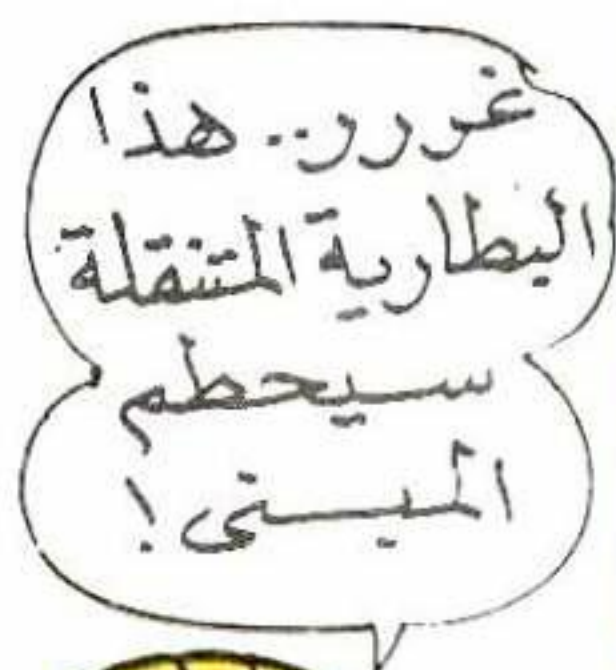 غررر.. هذا
البطارية المتنقلة
سيحطم
المبنى!